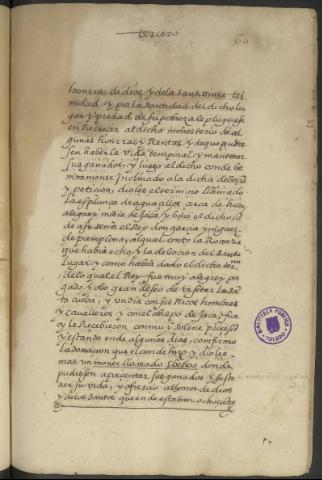 tercero
60
honrra, de dios, y de la santissima tri
nidad y por la santidad del dicho lu
gar y piedad de su pobreza le pluguiese
en Recrecer al dicho monesterio de al
gunas honrras y Rentas, y de que pudies
sen haber la vida temporal y mantener
sus ganados; y luego el dicho conde be
nignamente Inclinado a la dicha deboçion
y petiçion, dioles el termino llamado
la espluga de aguas altos cerca de
a legoa y media de Jaca, y bino el dicho
de a do estaba el Rey don garcia
de pamplona, al qual conto la Romeria
que habia echo y la deboçion del santo
lugar, y como habia dado el dicho termino
de lo qual el Rey fue muy alegre, y pa
gado y obo gran deseo de visitar la san
ta cueba; y un dia con sus Ricos hombres
y Cavalleros y con el obispo de Jaca, fue
y le Recebieron con muy solene procession
y estando ende algunos dias, confirmo
la donacion que el conde hizo, y dio les
mas un monte llamado donde
pudiesen apacentar sus ganados y soste
ner su vida; y ofreçio al honor de dios
y de los santos que ende estaban
BIBLIOTECA PUBLICA
TOLEDO